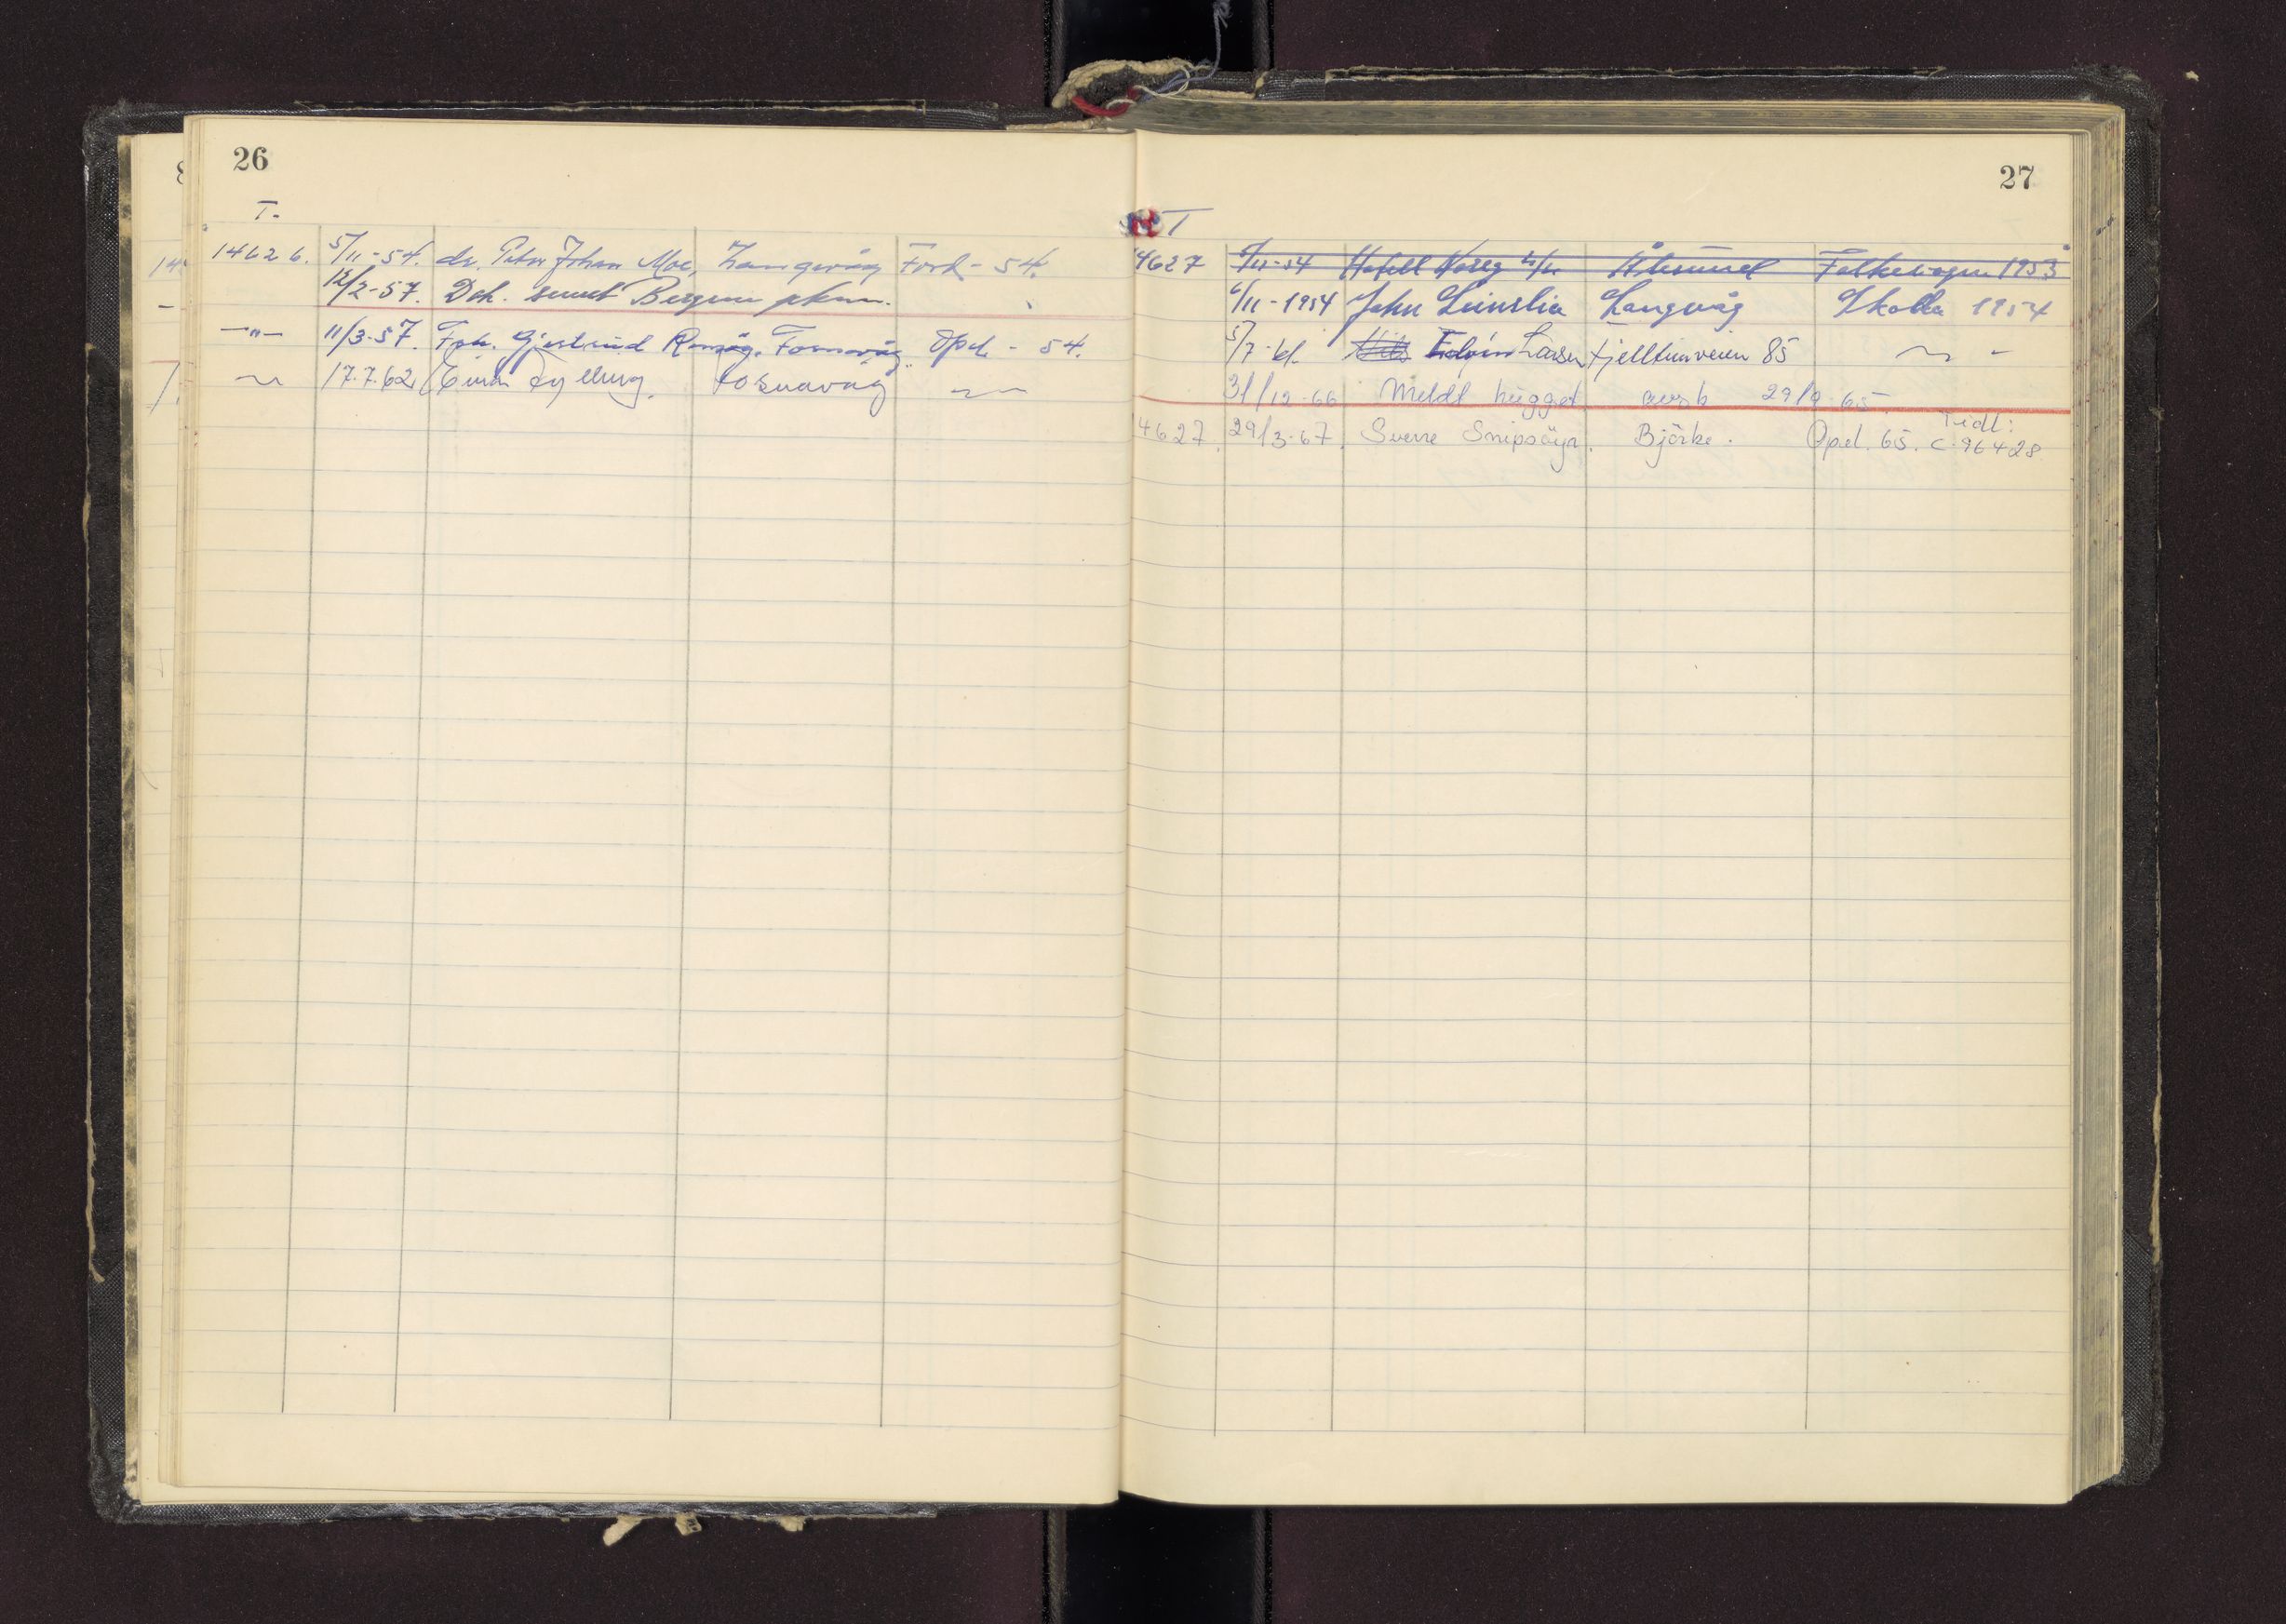 26
T.
14626. 5/11-54. dr. Peter Johan Moe, Langevåg Ford - 54.
12/2-57. Doh. sendt Bergen pkam.
—"— 11/3-57. Frk. Gjertrud Fosnavåg. Opel - 54.
17.7.62 Einar Fosnavåg
27
T
4627 /11-54 Hotell Noreg A/S Ålesund Folkevogn 1953
6/11-1954 John Leinslia Langevåg Skoda 1954
5/7-61. Edvin Larsen Fjelltunveien 85
31/12-66 Meldt hugget avsk 29/9-65.
4627. 29/3-67. Sverre Snipsøyr. Bjørke. Opel. 65. Tidl:
C-96428